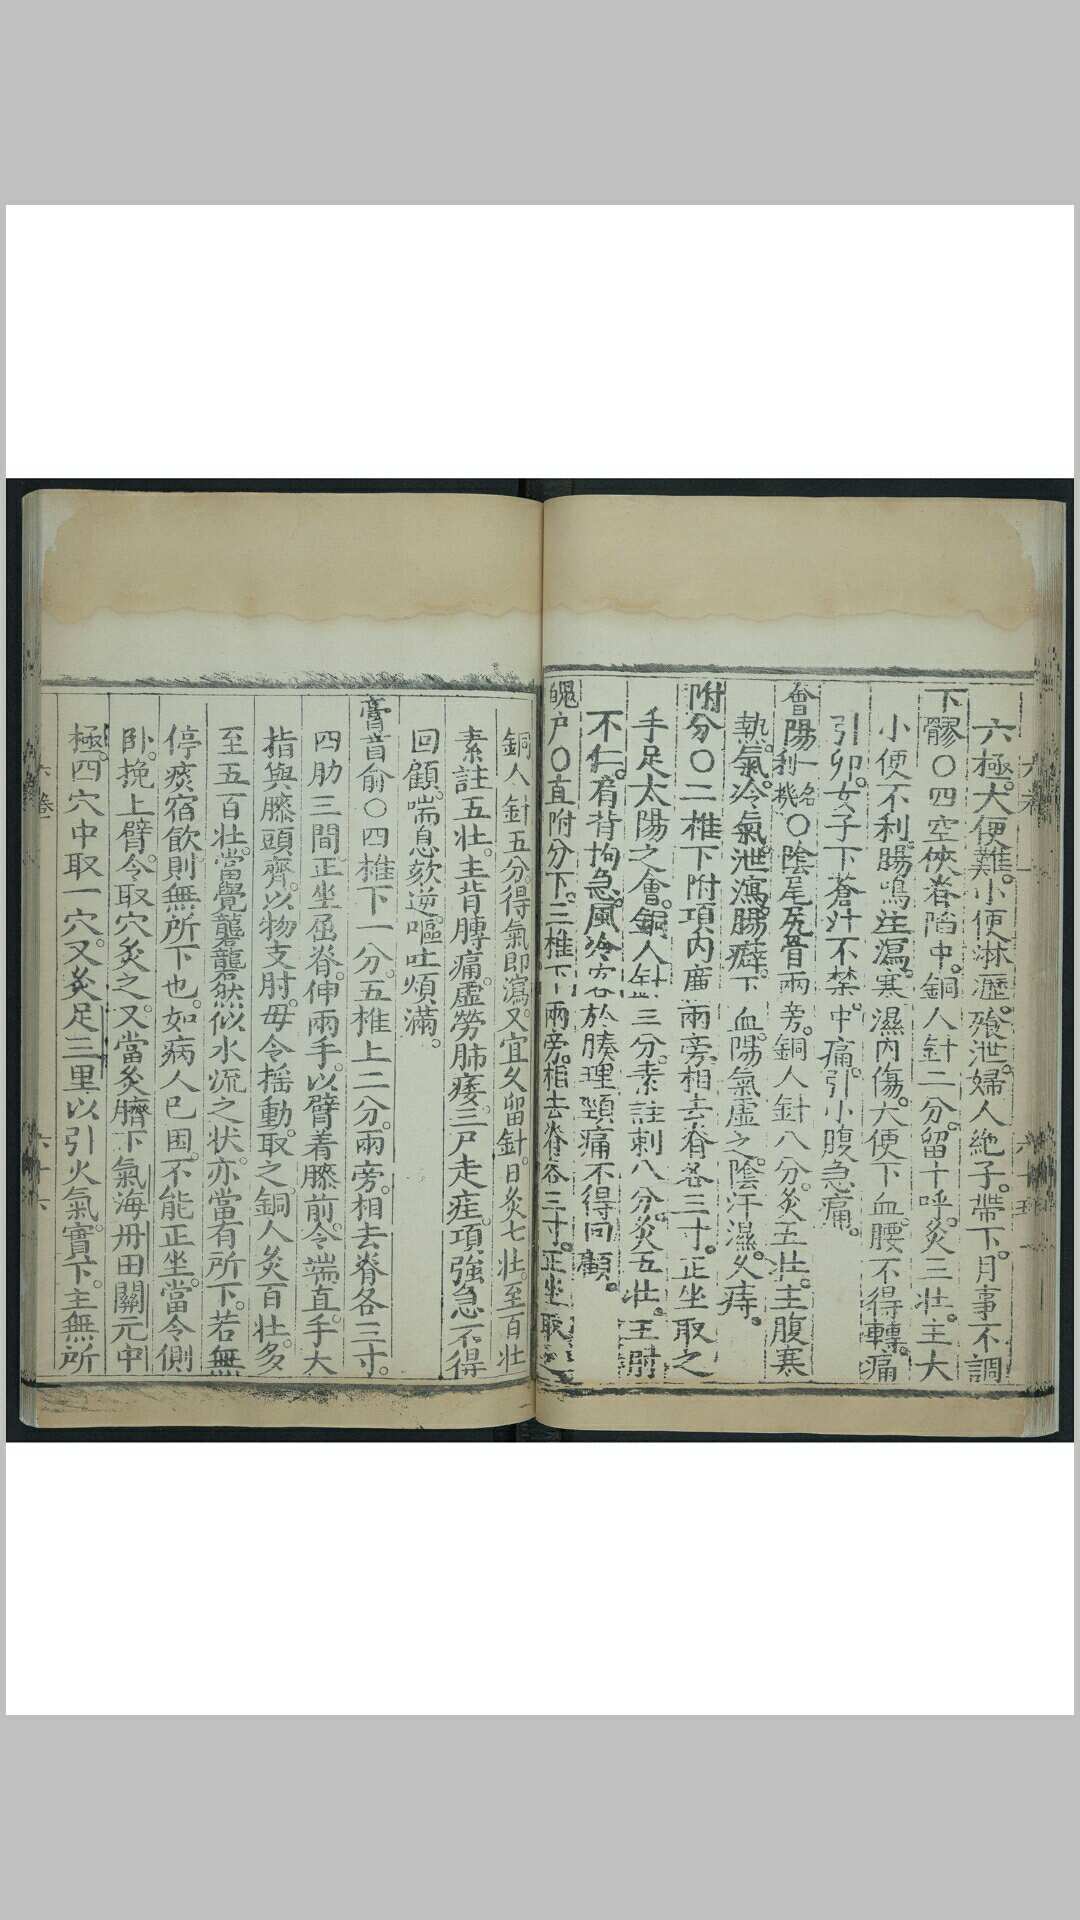 六極。大便難。小便淋瀝。飱泄。婦人絶子。帶下。月事不調
下髎○四空俠脊陷中。銅人針二分。留十呼。灸三壯。主大
小便不利。腸鳴注瀉。寒濕內傷。大便下血。腰不得轉。痛
引卵。女子下蒼汁不禁。中痛。引小腹急痛。
會陽一名利機○陰尾尻音兩旁。銅人針八分。灸五壯。主腹寒
熱氣。冷氣。泄瀉。腸癖。下血。陽氣虛乏。陰汗濕。久痔。
附分○二椎下附項內廉兩旁。相去脊各三寸。正坐取之
手足太陽之會。銅人針三分。素註刺八分。灸五壯。主肘
不仁。肩背拘急。風冷客於腠理。頸痛不得回顧。
魄户○直附分下。三椎下兩旁。相去脊各三寸。正坐取之
銅人針五分。得氣即瀉。又宜久留針。日灸七壯。至百壯
素註五壯。主背膊痛。虛勞肺痿。三尸走疰。項強急不得
回顧。喘息欬逆。嘔吐煩滿。
膏盲俞○四椎下一分。五椎上二分。兩旁。相去脊各三寸。
四肋三間。正坐屈脊。伸兩手。以臂着膝前。令端直。手大
指與膝頭齊。以物支肘。毋令搖動。取之。銅人灸百壯。多
至五百壯。當覺礱礱然似水流之狀。亦當有所下。若無
停痰宿飲則無所下也。如病人已困。不能正坐。當令側
卧。挽上臂。令取穴灸之。又當灸臍下氣海丹田關元中
極。四穴中取一穴。又灸足三里以引火氣。實下。主無所
六卷
六十六